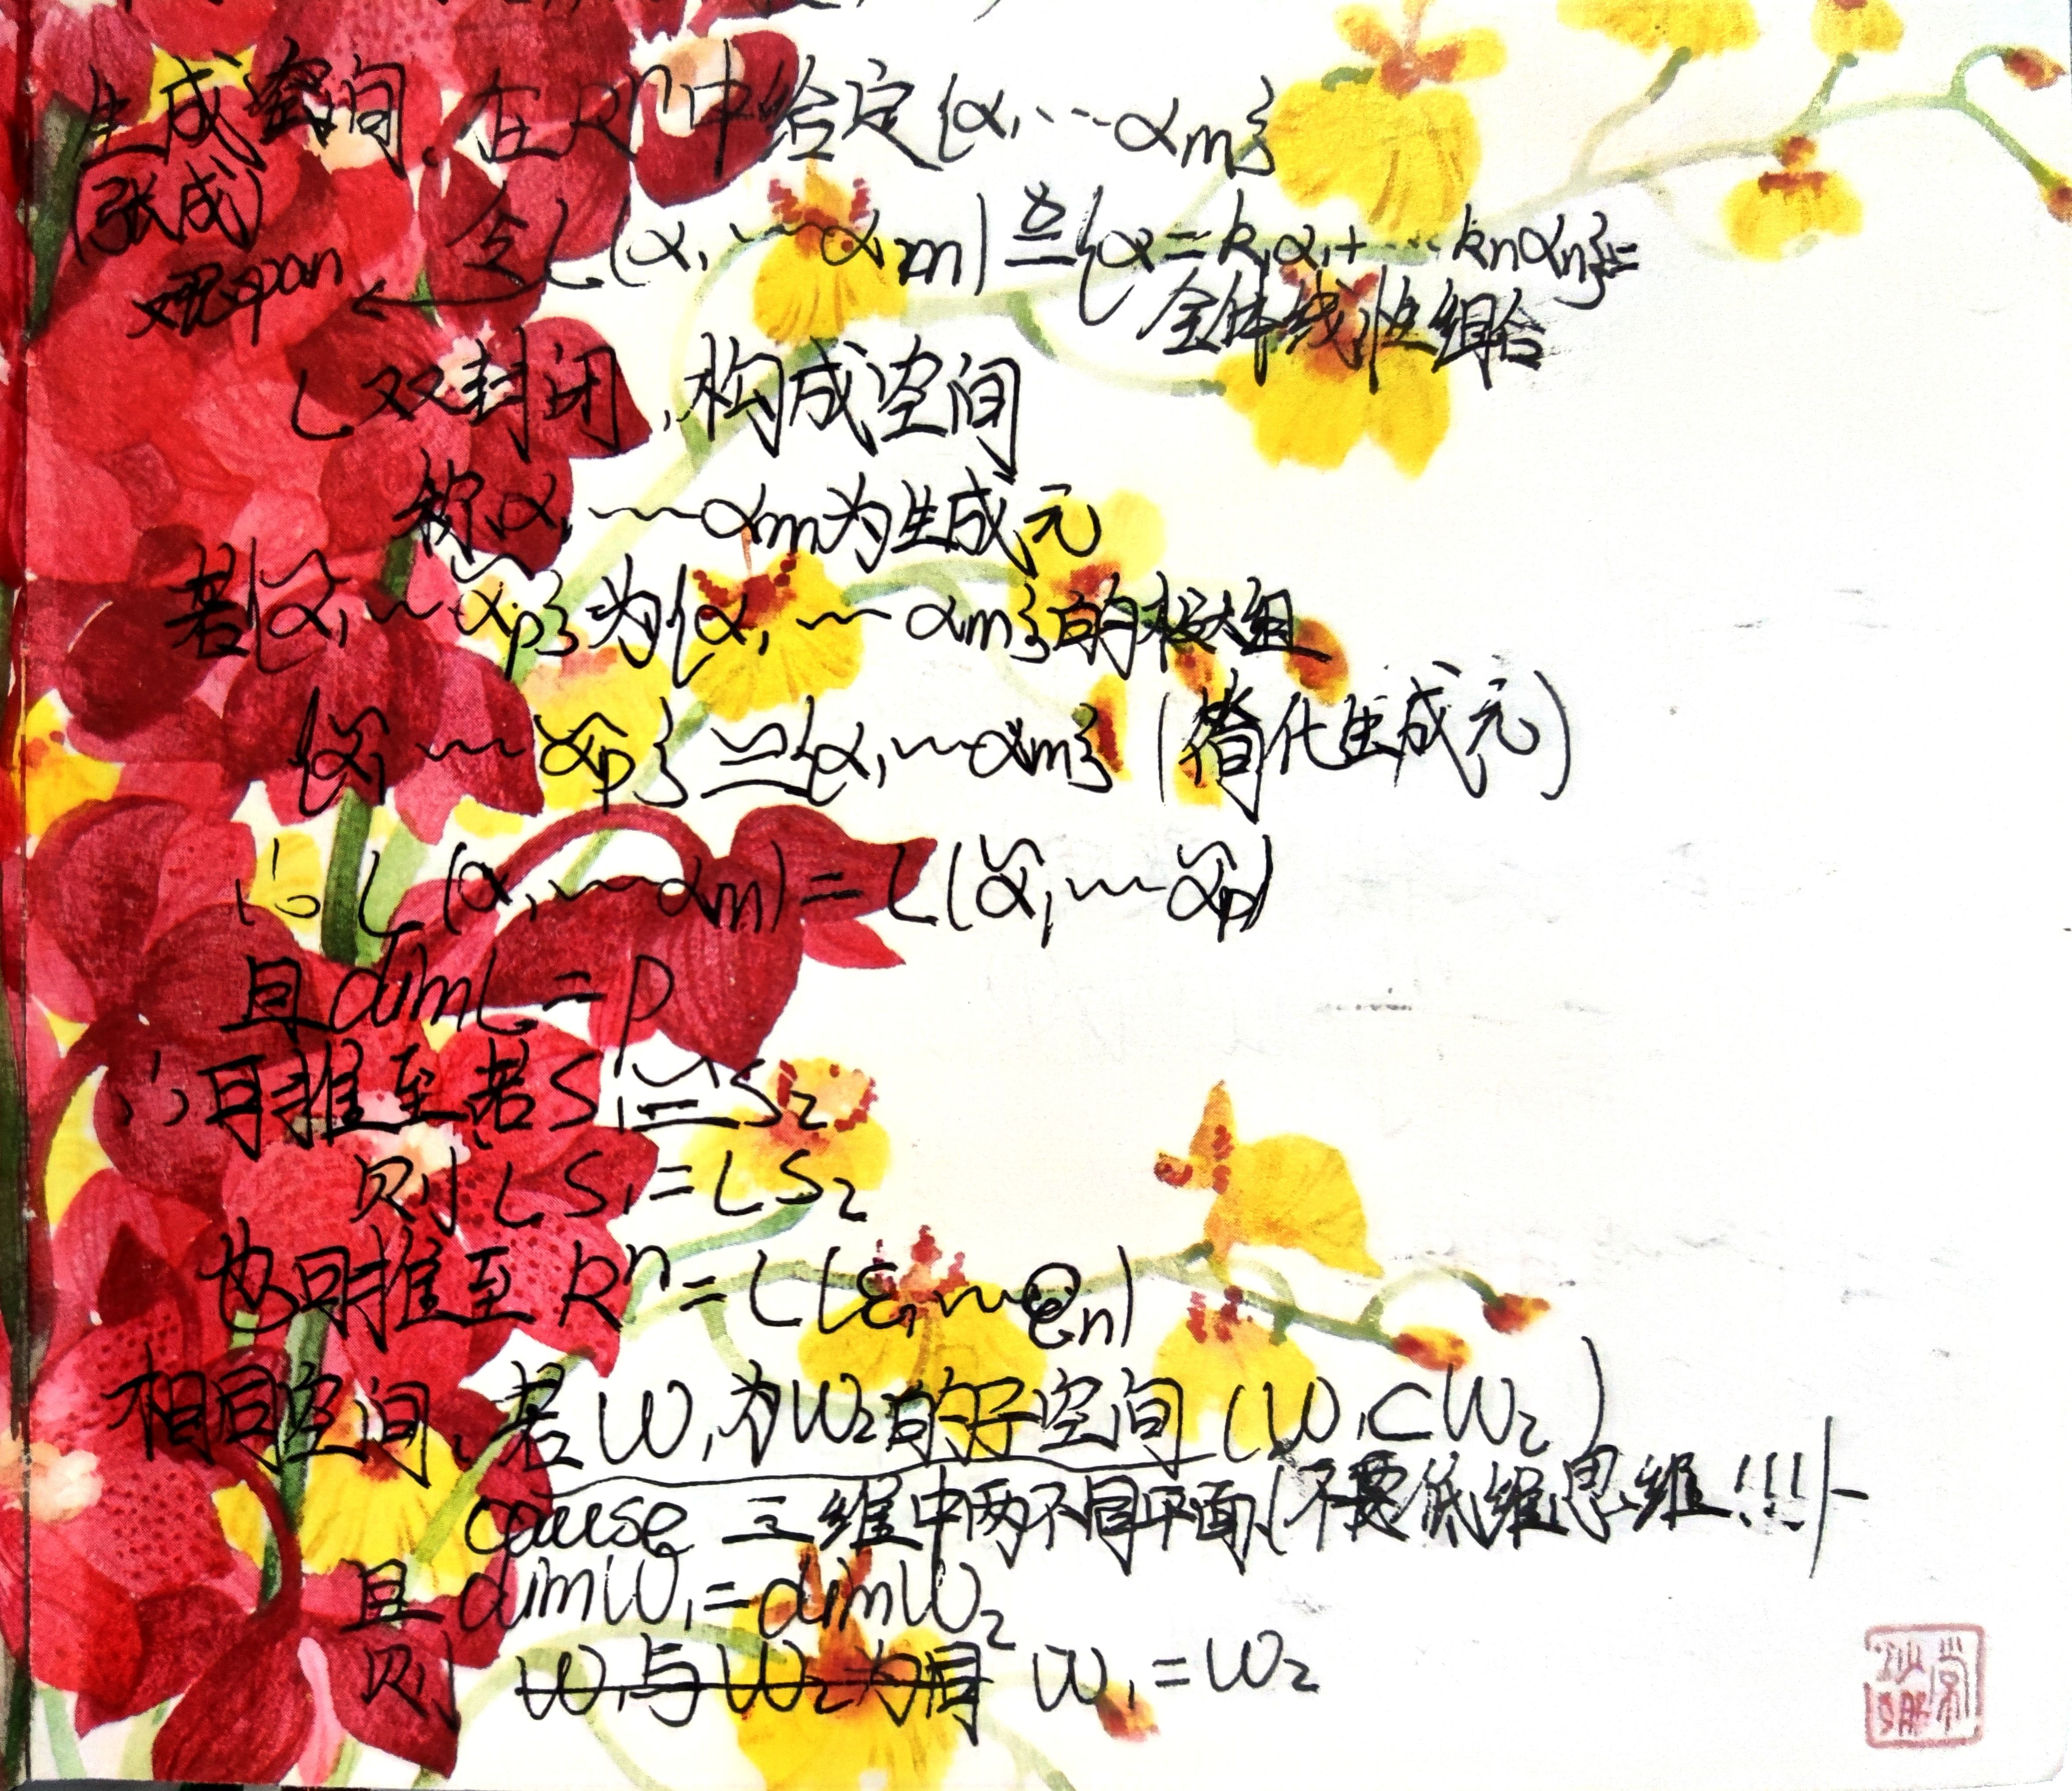 生成空间、在Rⁿ中给定{α₁…αm}
(张成)
令L(α₁…αm)≜{α=k₁α₁+…knαn}=
或span ←
全体线性组合
L双封闭,构成空间
称α₁…αm为生成元
若{α̃₁…α̃p}为{α₁…αm}的极大组
{α̃₁…α̃p}≌{α₁…αm}(替代生成元)
∴L(α₁…αm)=L(α̃₁…α̃p)
且dimL=p
∴可推至若S₁≌S₂
则LS₁=LS₂
也可推至Rⁿ=L(ε₁…en)
相同空间、若W₁为W₂的子空间(W₁⊂W₂)
cause 三维中两不同平面(不要低维思维!!!)
且dimW₁=dimW₂
则 W₁与W₂为同 W₁=W₂